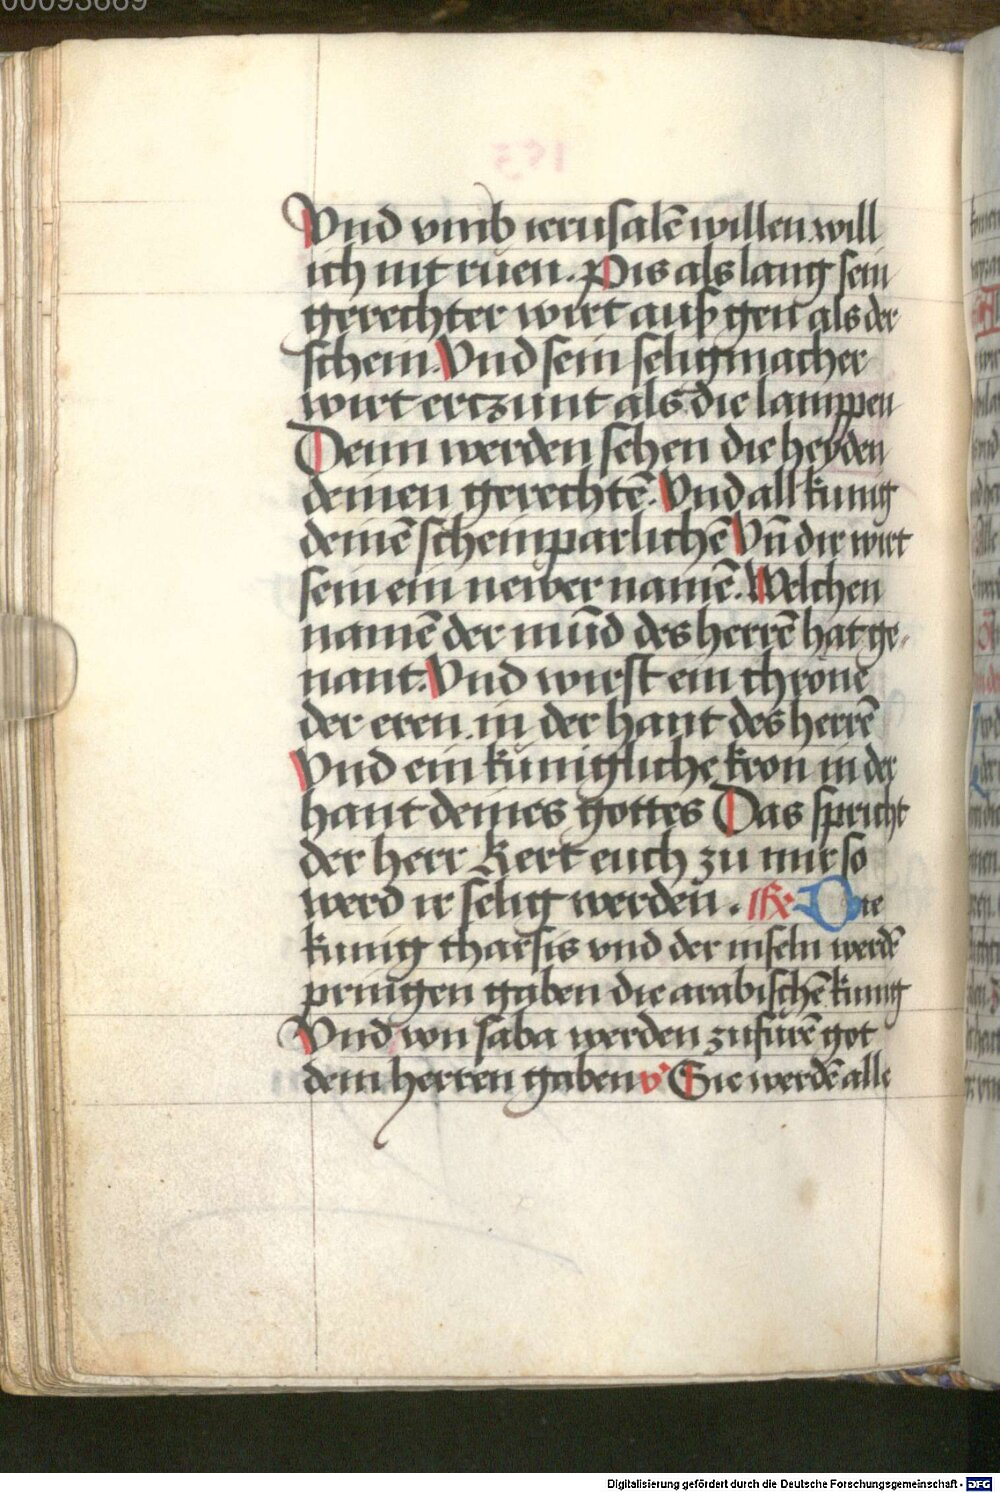 00093669
Vnd vmb ierusalē willen will
ich nit ruen. Pis als lang sein
gerechter wirt auß gen als der
schein. Vnd sein seligmacher
wirt erczunt als die lamppen
Denn werden sehen die heyden
deinen gerechtē. Vnd all kunig
deinē scheinparlichē Vn̄ dir wirt
sein ein newer namē. Welchen
namē der mūd des herrē hat ge-
nant. Vnd wirst ein chrone
der eren in der hant des herrē
Vnd ein kunigliche kron in der
hant deines gottes Das spricht
der herr Kert euch zu mir so
werd ir selig werden. Re Die
kunig tharsis vnd der inseln werdē
pringen gaben die arabischē kunig
Vnd von saba werden zufurē got
dem herren gaben v' Sie werdē alle
Digitalisierung gefördert durch die Deutsche Forschungsgemeinschaft - DFG